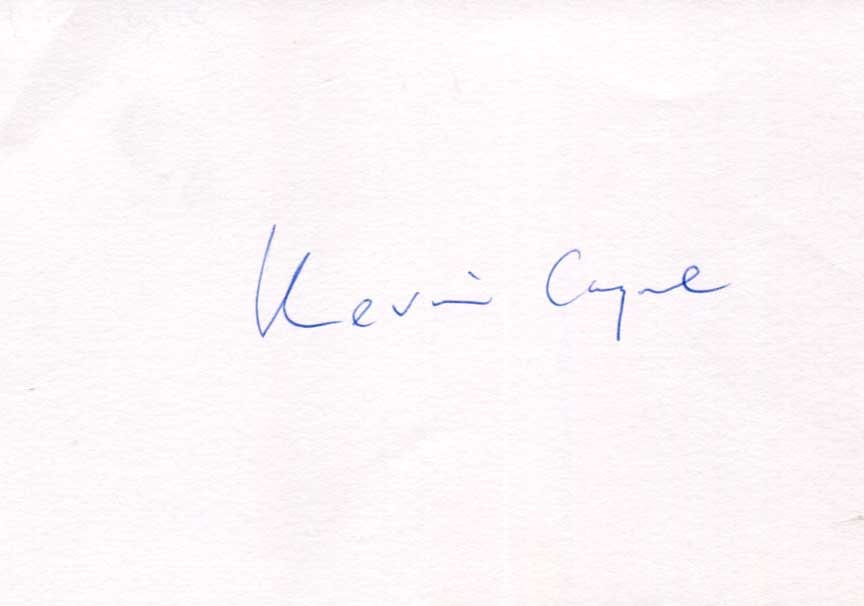 Kevin Cayne